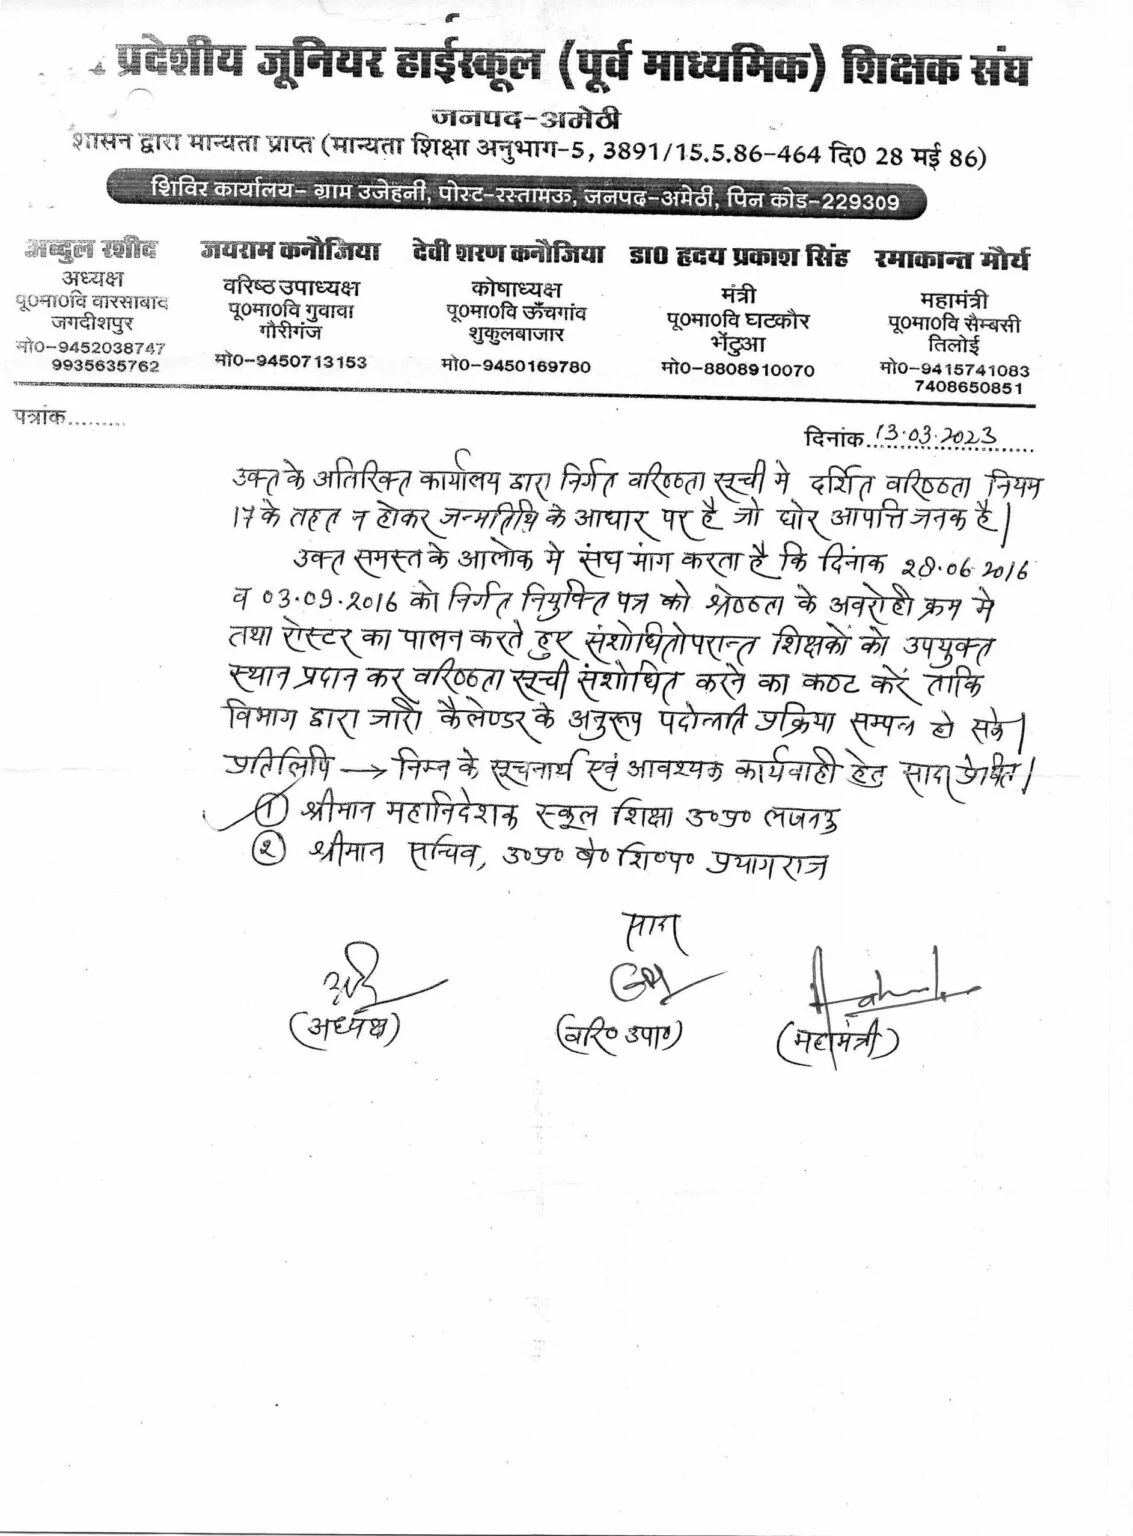 प्रदेशीय जूनियर हाईस्कूल (पूर्व माध्यमिक) शिक्षक संघ
जनपद-अमेठी
शासन द्वारा मान्यता प्राप्त (मान्यता शिक्षा अनुभाग-5, 3891/15.5.86-464 दि0 28 मई 86)
शिविर कार्यालय- ग्राम उजेहनी, पोस्ट-रस्तामऊ, जनपद-अमेठी, पिन कोड-229309
अब्दुल रशीद
अध्यक्ष
पू0मा0वि वारसाबाद
जगदीशपुर
मो0-9452038747
9935635762
जयराम कनौजिया
वरिष्ठ उपाध्यक्ष
पू0मा0वि गुवावा
गौरीगंज
मो0-9450713153
देवी शरण कनौजिया
कोषाध्यक्ष
पू0मा0वि ऊँचगांव
शुकुलबाजार
मो0-9450169780
डा0 हृदय प्रकाश सिंह
मंत्री
पू0मा0वि घटकौर
भेंटुआ
मो0-8808910070
रमाकान्त मौर्य
महामंत्री
पू0मा0वि सैम्बसी
तिलोई
मो0-9415741083
7408650851
पत्रांक.........
दिनांक 13.03.2023
उक्त के अतिरिक्त कार्यालय द्वारा निर्गत वरिष्ठता सूची मे दर्शित वरिष्ठता नियम
17 के तहत न होकर जन्मतिथि के आधार पर है जो घोर आपत्ति जनक है।
उक्त समस्त के आलोक मे संघ मांग करता है कि दिनांक 28.06.2016
व 03.09.2016 को निर्गत नियुक्ति पत्र को श्रेष्ठता के अवरोही क्रम मे
तथा रोस्टर का पालन करते हुए संशोधितोपरान्त शिक्षकों को उपयुक्त
स्थान प्रदान कर वरिष्ठता सूची संशोधित करने का कष्ट करें ताकि
विभाग द्वारा जारी कैलेण्डर के अनुरूप पदोन्नति प्रक्रिया सम्पन्न हो सके।
प्रतिलिपि → निम्न के सूचनार्थ एवं आवश्यक कार्यवाही हेतु सादर प्रेषित।
① श्रीमान महानिदेशक स्कूल शिक्षा उ०प्र० लखनऊ
② श्रीमान सचिव, उ०प्र० बे० शि०प० प्रयागराज
(अध्यक्ष)
(वरि० उपा०)
(महामंत्री)